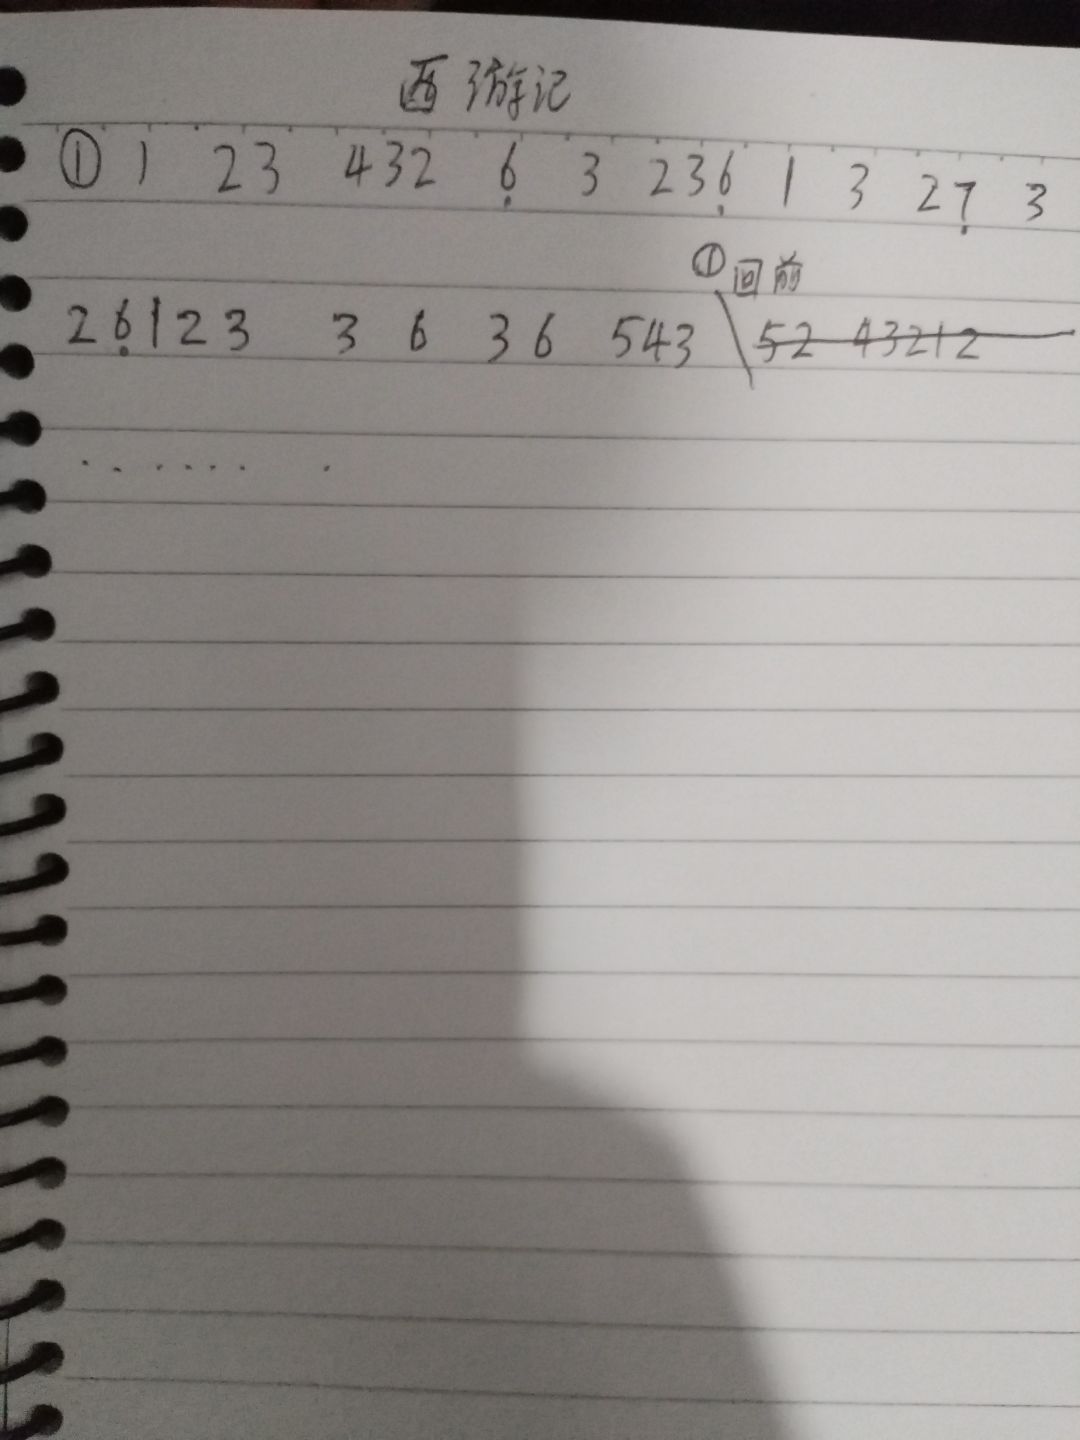 西游记
① 1 23 432 6̣ 3 236̣ 1 3 27̣ 3
①回前
26̣123 3 6 36 543 \ 52 43212